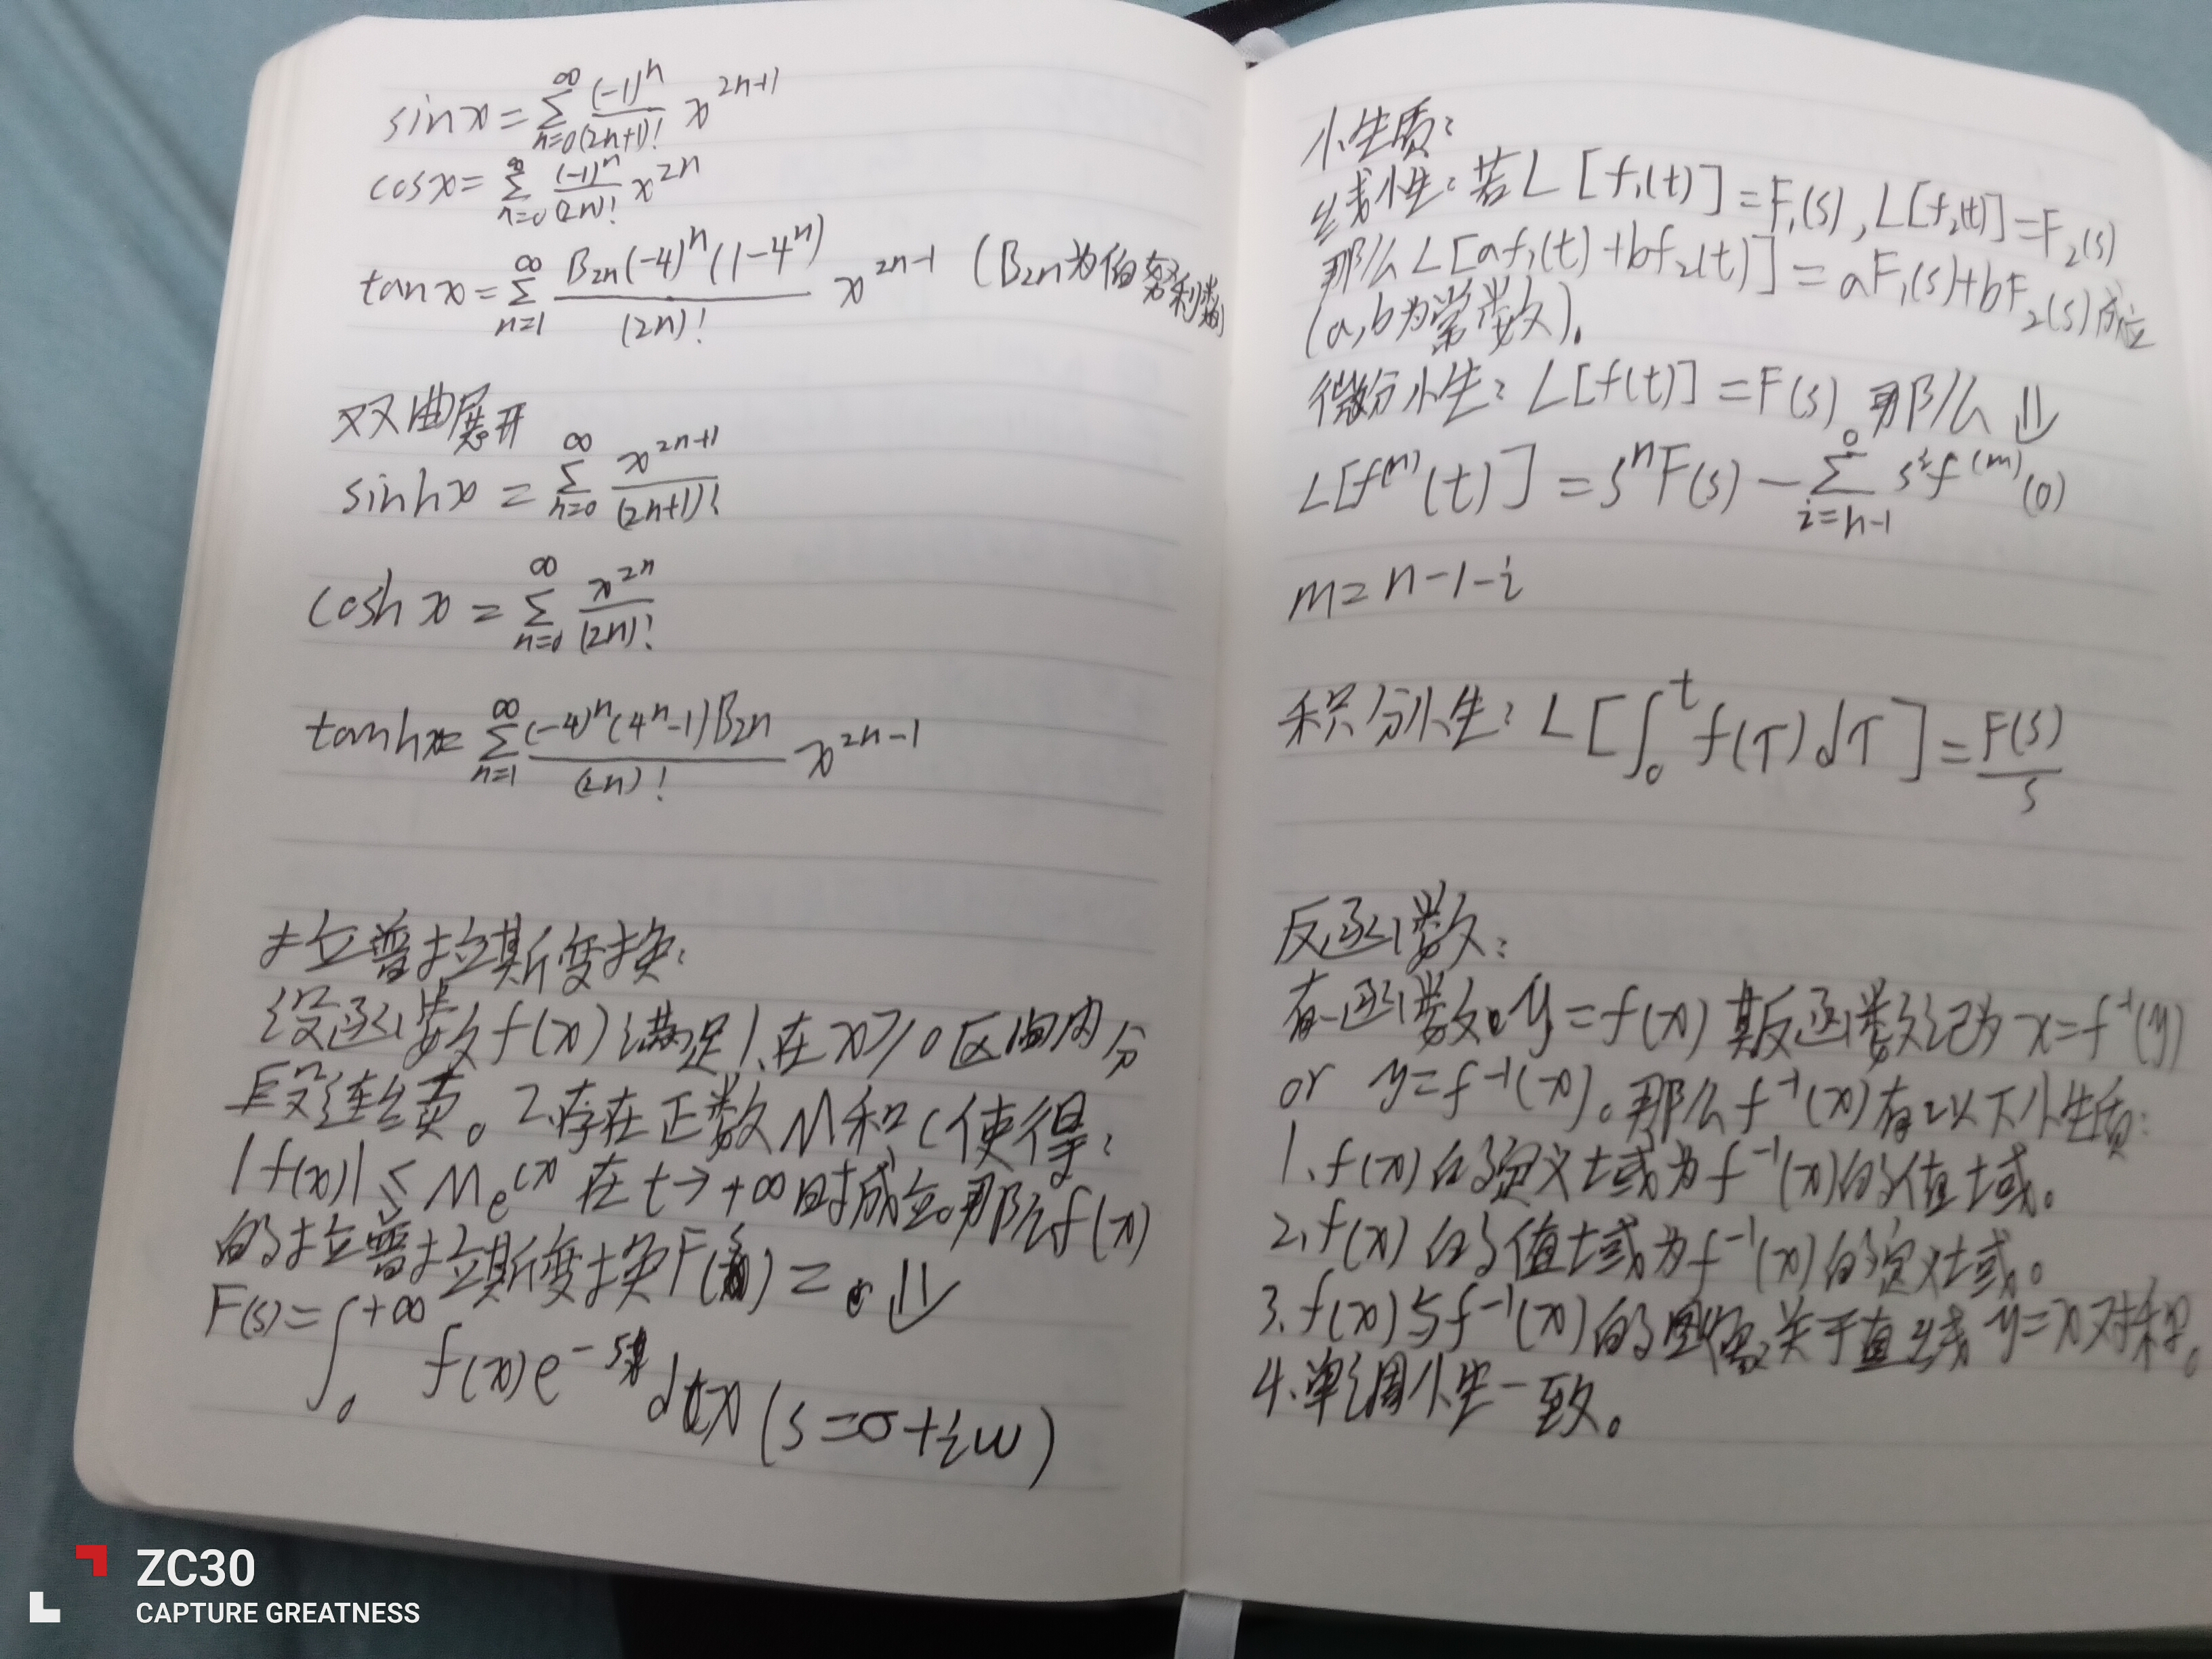 sinx = ∑_{n=0}^{∞} (-1)^n/(2n+1)! x^{2n+1}
cosx = ∑_{n=0}^{∞} (-1)^n/(2n)! x^{2n}
tanx = ∑_{n=1}^{∞} B_{2n}(-4)^n(1-4^n)/(2n)! x^{2n-1} (B_{2n}为伯努利数)
双曲展开
sinhx = ∑_{n=0}^{∞} x^{2n+1}/(2n+1)!
coshx = ∑_{n=0}^{∞} x^{2n}/(2n)!
tanhx = ∑_{n=1}^{∞} (-4)^n(4^n-1)B_{2n}/(2n)! x^{2n-1}
拉普拉斯变换:
设函数f(x)满足1、在x≥0区间内分
段连续。2、存在正数M和c使得:
|f(x)| ≤ Me^{cx} 在t→+∞时成立。那么f(x)
的拉普拉斯变换F(s) = ⇓
F(s) = ∫_0^{+∞} f(x)e^{-sx} dx (s=σ+iω)
性质:
线性性:若L[f₁(t)]=F₁(s),L[f₂(t)]=F₂(s)
那么L[af₁(t)+bf₂(t)]=aF₁(s)+bF₂(s)成立
(a,b为常数)。
微分性:L[f(t)]=F(s) 那么⇓
L[f^{(n)}(t)] = s^nF(s) - ∑_{i=n-1}^{0} s^i f^{(m)}(0)
m=n-1-i
积分性:L[∫_0^t f(T)dT] = F(s)/s
反函数:
有一函数y=f(x)其反函数记为x=f^{-1}(y)
or y=f^{-1}(x)。那么f^{-1}(x)有以下性质:
1、f(x)的定义域为f^{-1}(x)的值域。
2、f(x)的值域为f^{-1}(x)的定义域。
3、f(x)与f^{-1}(x)的图像关于直线y=x对称。
4、单调性一致。
ZC30
CAPTURE GREATNESS